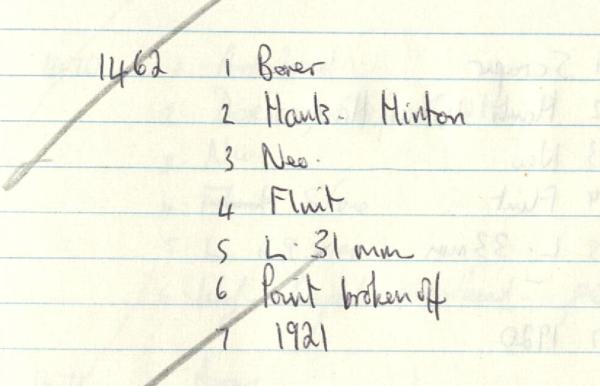 1462 1 Borer
2 Hants. Minton
3 Neo.
4 Flint
5 L. 31 mm
6 Point broken off
7 1921